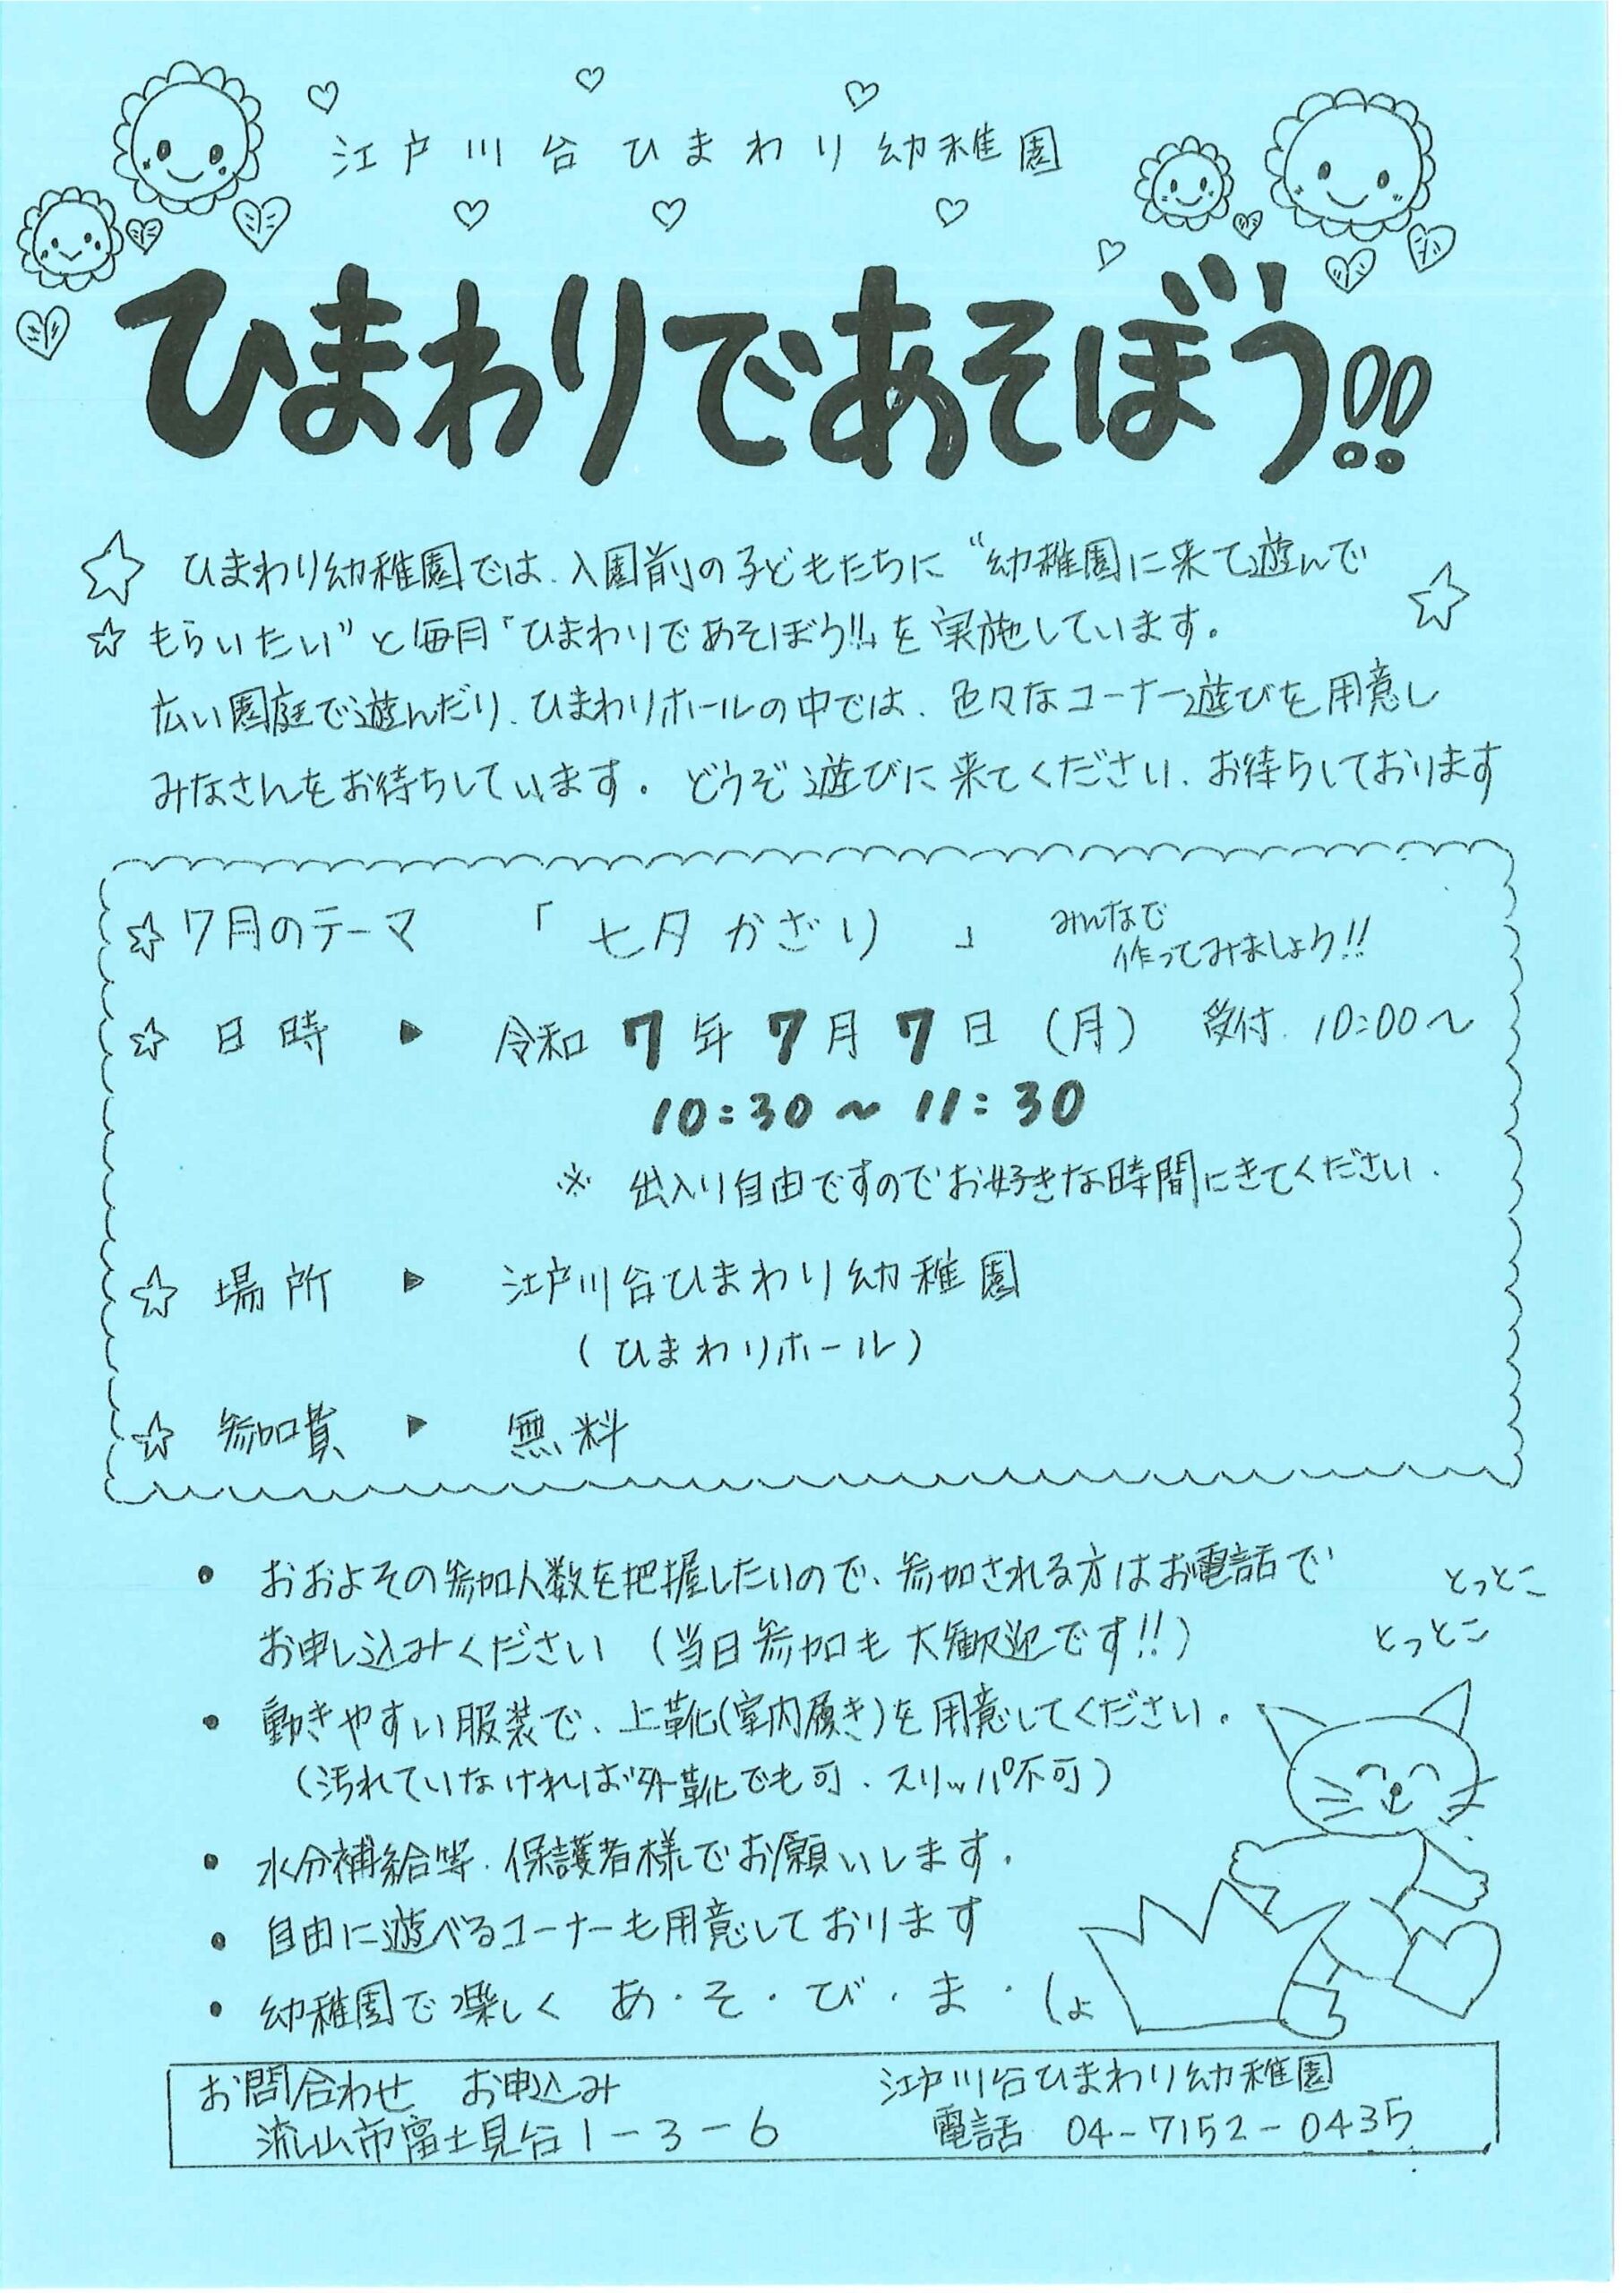 江戸川台ひまわり幼稚園
ひまわりであそぼう!!
ひまわり幼稚園では、入園前の子どもたちに“幼稚園に来て遊んで
もらいたい”と毎月「ひまわりであそぼう!!」を実施しています。
広い園庭で遊んだり、ひまわりホールの中では、色々なコーナー遊びを用意し
みなさんをお待ちしています。どうぞ遊びに来てください、お待ちしております
☆7月のテーマ 「七夕かざり」 みんなで
作ってみましょう!!
☆日時 ▶ 令和7年7月7日(月) 受付 10:00~
10:30~11:30
※ 出入り自由ですのでお好きな時間にきてください.
☆場所 ▶ 江戸川台ひまわり幼稚園
(ひまわりホール)
☆参加費 ▶ 無料
・おおよその参加人数を把握したいので、参加される方はお電話で
お申し込みください (当日参加も大歓迎です!!)
とっとこ
とっとこ
・動きやすい服装で、上靴(室内履き)を用意してください。
(汚れていなければ外靴でも可、スリッパ不可)
・水分補給等、保護者様でお願いします.
・自由に遊べるコーナーも用意しております
・幼稚園で楽しく あ・そ・び・ま・しょ
お問合わせ お申込み 江戸川台ひまわり幼稚園
流山市富士見台1-3-6 電話 04-7152-0435